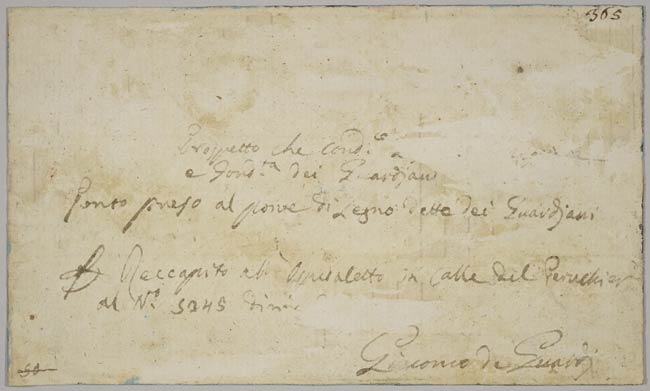 365
Prospetto che cond.e a
e Fond.ta dei Guardiani
Ponto preso al ponte di Legno detto dei Guardiani
Reccapito all' Ospedaletto in Calle del Peruchier
al N.o 5245
Giacomo de Guardi